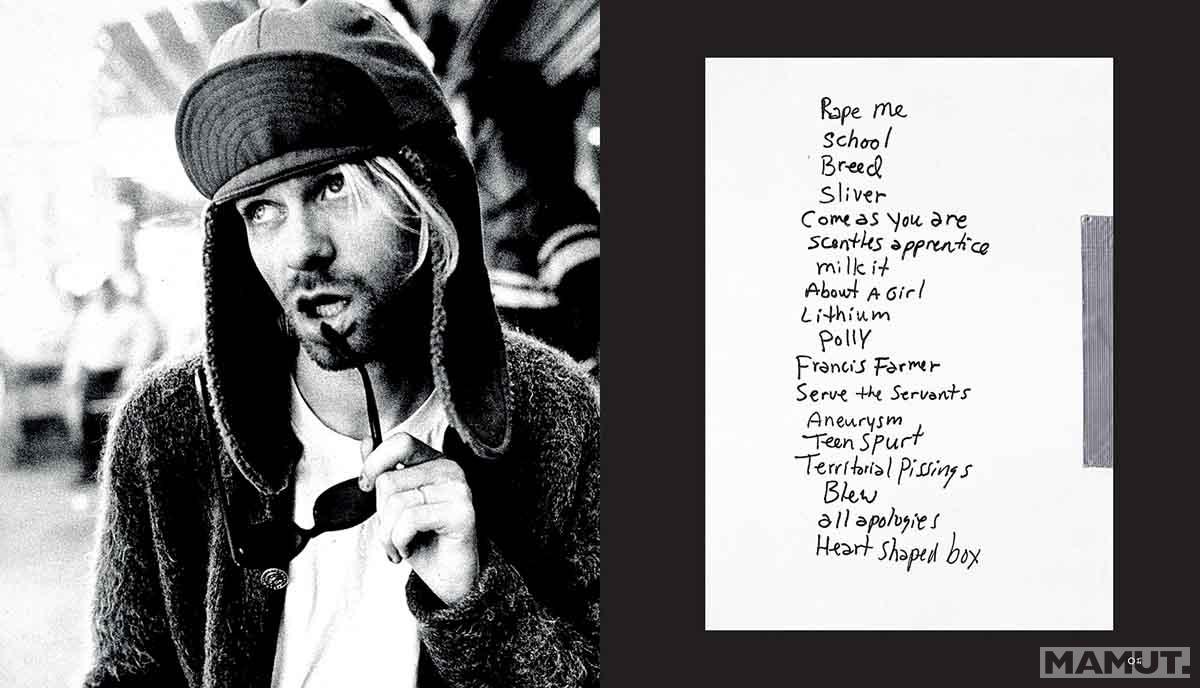 Rape me
School
Breed
Sliver
Come as you are
scentles apprentice
milk it
About A Girl
Lithium
Polly
Francis Farmer
Serve the Servants
Aneurysm
Teen Spurt
Territorial Pissings
Blew
all apologies
Heart shaped box
MAMUT.